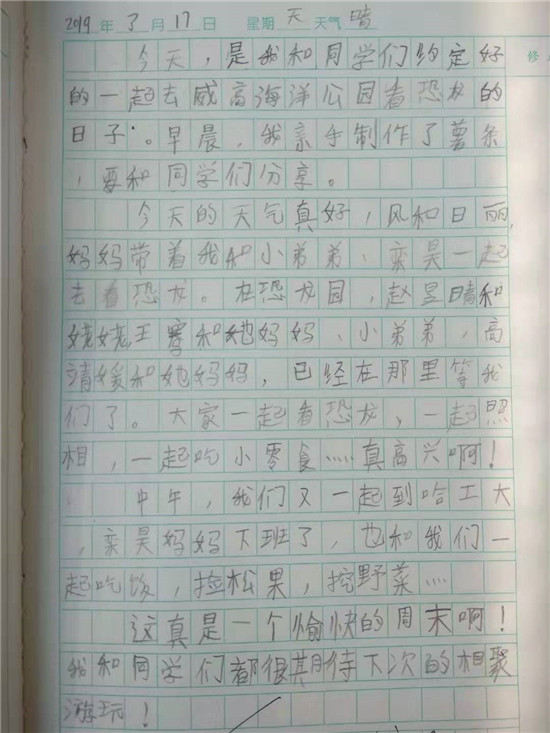 2019年3月17日 星期天 天气晴
今天，是我和同学们约定好
修
的一起去威高海洋公园看恐龙的
日子。早晨，我亲手制作了薯条
，要和同学们分享。
今天的天气真好，风和日丽，
妈妈带着我和小弟弟、栾昊一起
去看恐龙。在恐龙园，赵昱晴和
姥姥王骞和她妈妈、小弟弟，高
靖媛和她妈妈，已经在那里等我
们了。大家一起看恐龙，一起照
相，一起吃小零食……真高兴啊！
中午，我们又一起到哈工大
，栾昊妈妈下班了，也和我们一
起吃饭，捡松果，挖野菜……
这真是一个愉快的周末啊！
我和同学们都很期待下次的相聚
游玩！